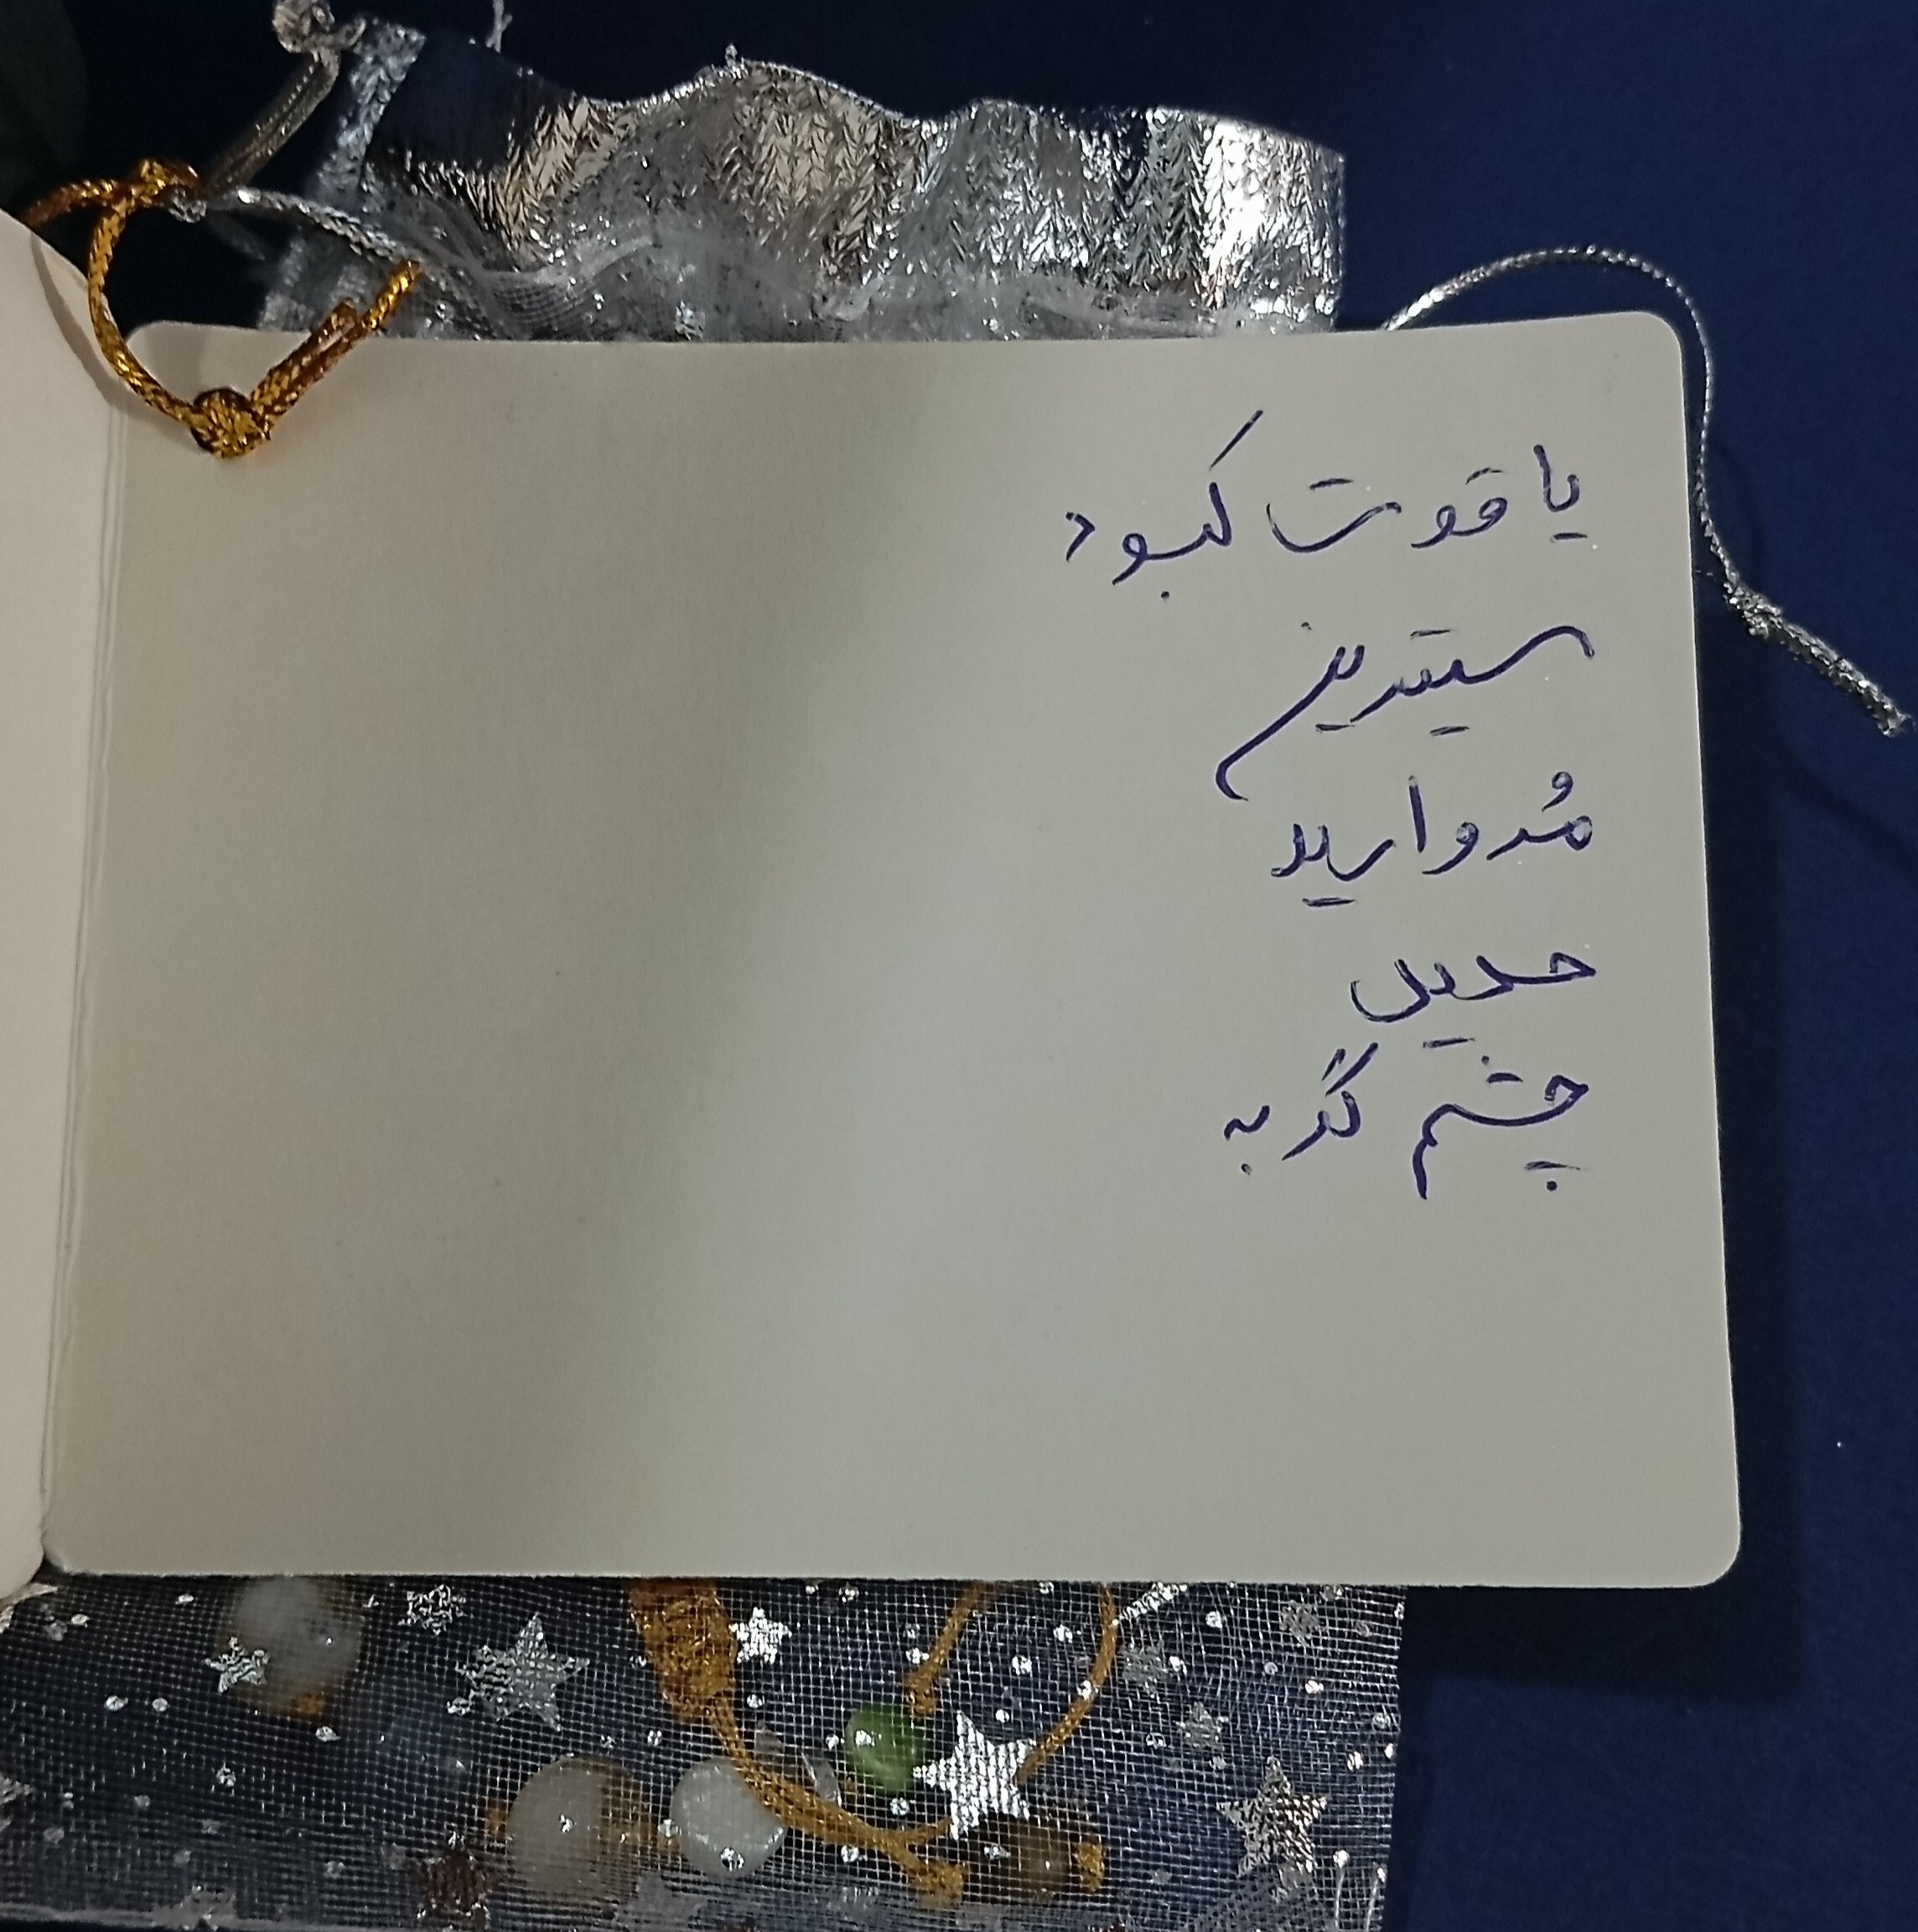 یاقوت کبود
سیترین
مُروارید
حدید
چشم گربه